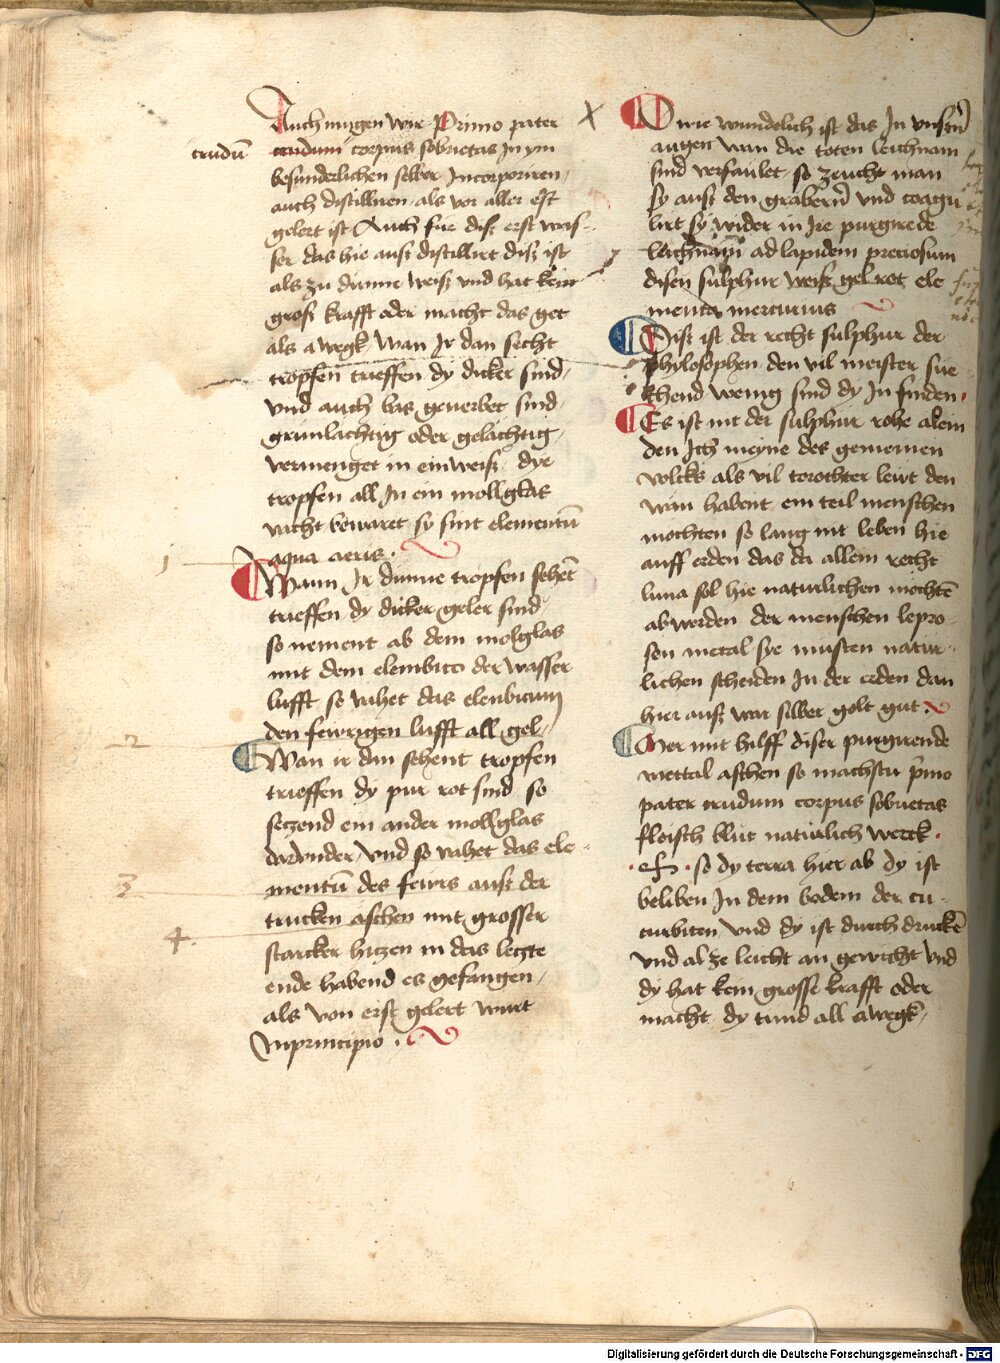 Auch mugen wir Primo pater
crudū
crudum corpus sobrietas Jn ym
besunderlichen selber Jncorporiren
auch distilliren als vor aller erst
gelert ist Auch fur diß erst was
ser das hie auß distillirt diß ist
als zu dunne weiß vnd hat kein
groß krafft oder macht das get
als awegk Wan Jr dan secht
tropfen trieffen dy dicker sind
vnd auch bas geuerbet sind
grunlachtig oder gelachtig
vermenget in ein weiß dye
tropfen all Jn ein mollglas
vacht bewaret sy sint elementū
aqua aeris
1
Wann Jr dunne tropfen sehēt
trieffen dy dicker geler sind
so nement ab dem molglas
mit dem elembico der wasser
lufft so vahet das elenbicum
den fewrigen lufft all gel
2
Wan ir dan sehent tropfen
trieffen dy pur rot sind so
seczend ein ander mollglas
darvnder vnd so vahet das ele
mentū des fewrs auß der
3
trucken aschen mit grosser
4
starcker hiczen in das leczte
ende habend es gefangen
als von erst gelert wurt
Jnprincipio
X
O wie wunderlich ist das Jn vnsern̄
augen wan die toten leichnam
sind verfaulet so zeucht man
sy auß den grabern̄ vnd coagu
lirt sy wider in Jre purgirede
leichnam ad lapidem preciosum
disen sulphur weiß gel rot ele
menta mercurius
Diß ist der recht sulphur der
philosophen den vil meister sue
chend wenig sind dy Jn finden
Es ist nit der sulphur rohe alein
den Jch meyne des gemeinen
volcks als vil torochter leut den
wan habent ein teil menschen
mochten so lang nit leben hie
auff erden das da allein recht
luna sol hie naturlichen mochtē
abwerden der menschen lepro
sen metal sye musten natur
lichen scheiden Jn der erden dan
hier auß war silber golt gut
Aber mit hilff diser purgirende
mettal aschen so machstu p̄mo
pater crudum corpus sobrietas
fleisch blut naturlich werck
so dy terra hier ab dy ist
beliben Jn dem bodem der cu
curbiten vnd dy ist durch druckē
vnd alze leicht an gewicht vnd
dy hat kein grosse krafft oder
macht dy tund all awegk
Digitalisierung gefördert durch die Deutsche Forschungsgemeinschaft - DFG